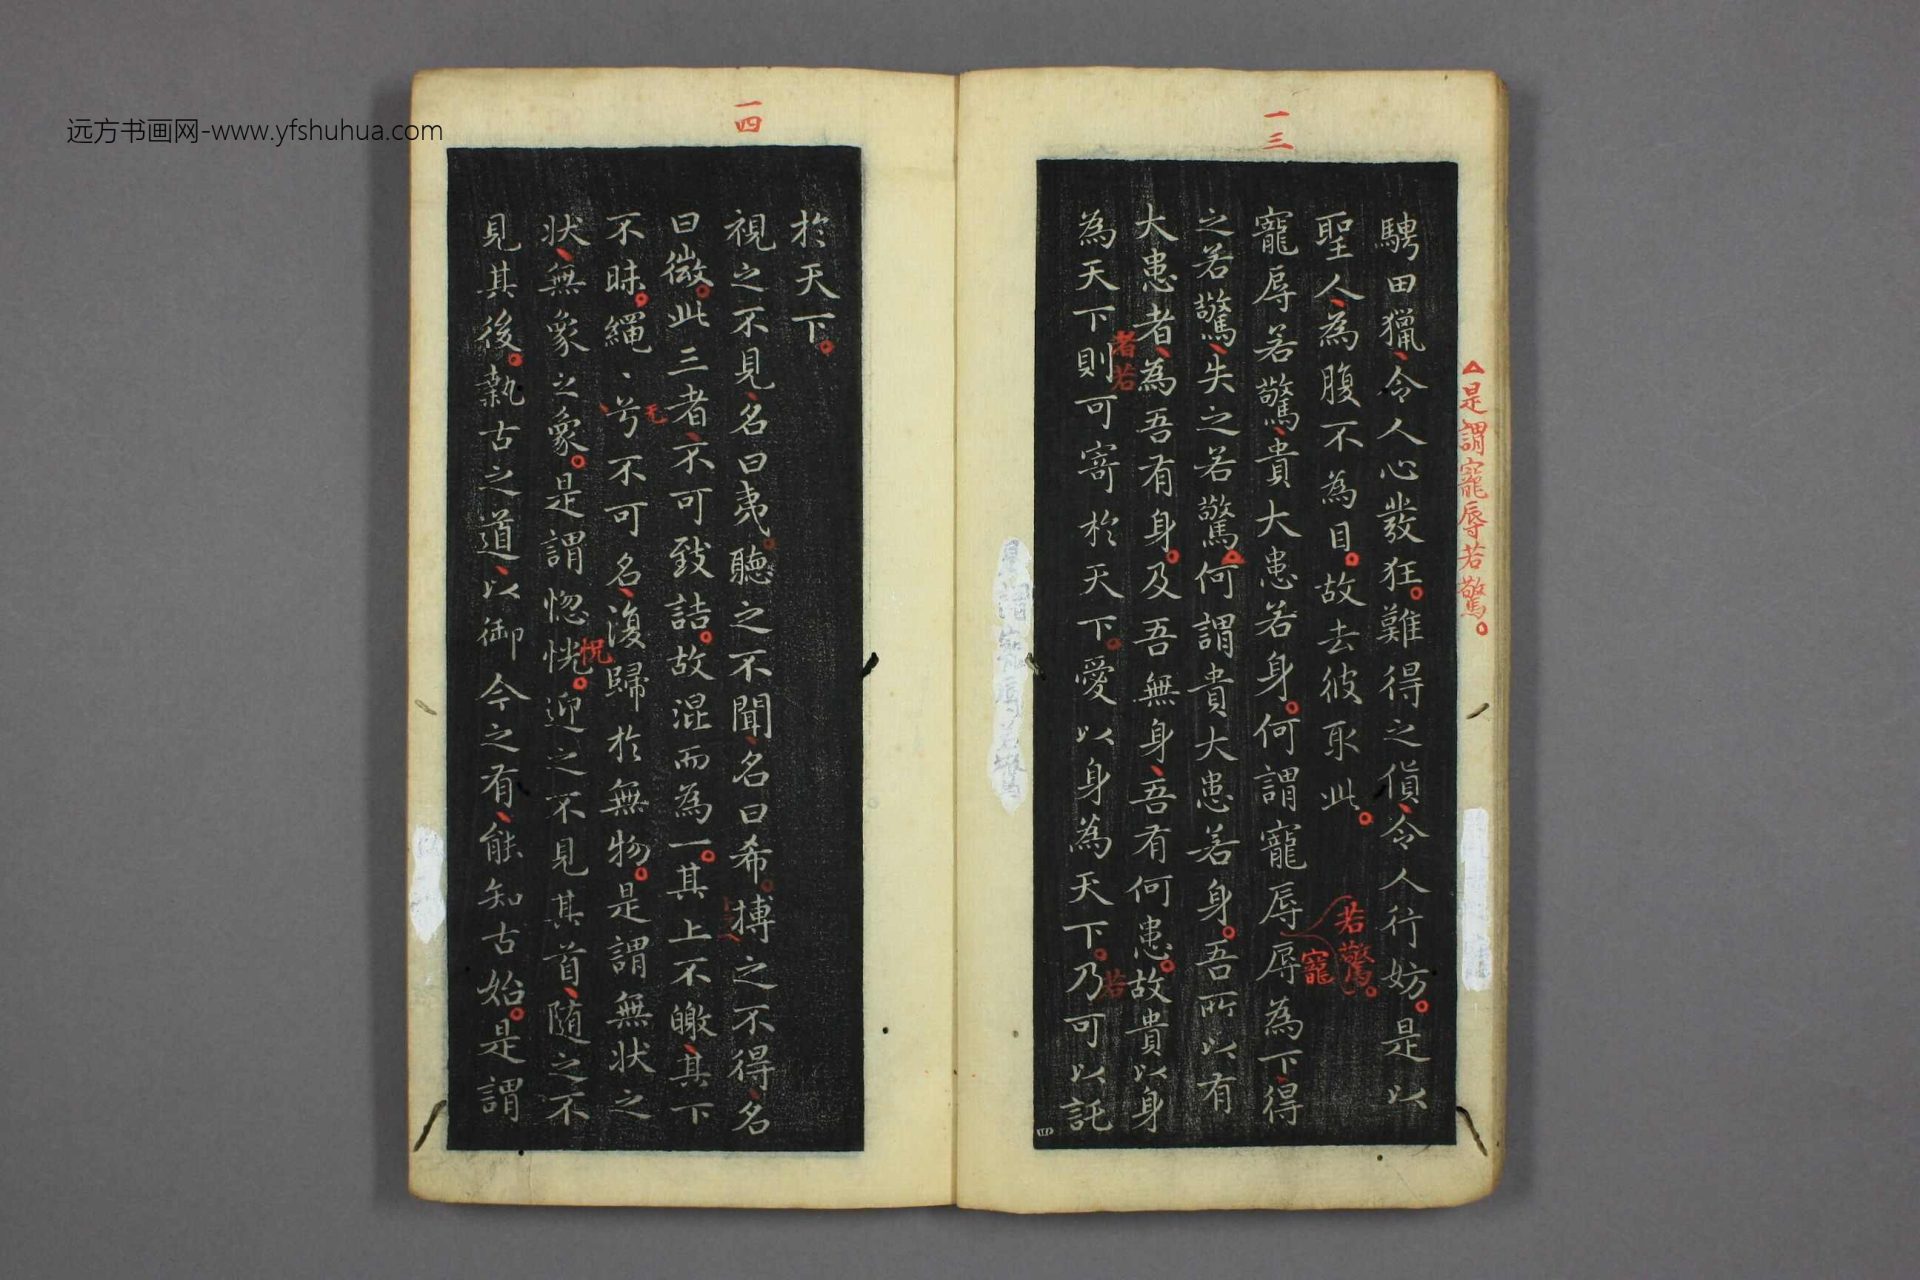 远方书画网-www.yfshuhua.com
一三
是謂寵辱若驚。
騁田獵、令人心發狂。難得之貨、令人行妨。是以
聖人、為腹不為目。故去彼取此。
寵辱若驚、貴大患若身。何謂寵辱辱為下、得
若驚。
寵
之若驚、失之若驚何謂貴大患若身。吾所以有
大患者、為吾有身。及吾無身、吾有何患。故貴以身
者若
若
為天下則可寄於天下。愛以身為天下。乃可以託
四
一四
於天下。
視之不見、名曰夷。聽之不聞、名曰希。摶之不得、名
曰微。此三者、不可致詰。故混而為一。其上不皦、其下
不昧。繩、兮不可名、復歸於無物。是謂無狀之
无
狀、無象之象。是謂惚恍。迎之不見其首、隨之不
怳
見其後。執古之道、以御今之有、能知古始。是謂